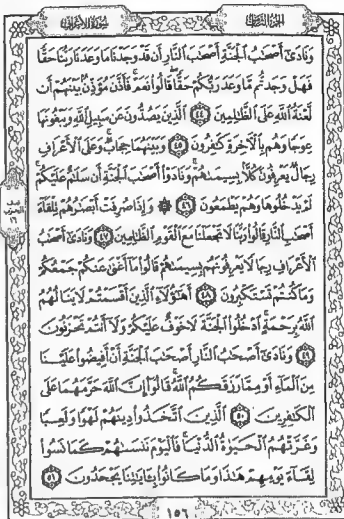 الجزء الثامن
سورة الأعراف
وَنَادَىٰٓ أَصْحَٰبُ ٱلْجَنَّةِ أَصْحَٰبَ ٱلنَّارِ أَن قَدْ وَجَدْنَا مَا وَعَدَنَا رَبُّنَا حَقًّا
فَهَلْ وَجَدتُّم مَّا وَعَدَ رَبُّكُمْ حَقًّا قَالُوا۟ نَعَمْ فَأَذَّنَ مُؤَذِّنٌۢ بَيْنَهُمْ أَن
لَّعْنَةُ ٱللَّهِ عَلَى ٱلظَّٰلِمِينَ ٤٤ ٱلَّذِينَ يَصُدُّونَ عَن سَبِيلِ ٱللَّهِ وَيَبْغُونَهَا
عِوَجًا وَهُم بِٱلْءَاخِرَةِ كَٰفِرُونَ ٤٥ وَبَيْنَهُمَا حِجَابٌ وَعَلَى ٱلْأَعْرَافِ
رِجَالٌ يَعْرِفُونَ كُلًّۢا بِسِيمَىٰهُمْ وَنَادَوْا۟ أَصْحَٰبَ ٱلْجَنَّةِ أَن سَلَٰمٌ عَلَيْكُمْ
لَمْ يَدْخُلُوهَا وَهُمْ يَطْمَعُونَ ٤٦ ۞ وَإِذَا صُرِفَتْ أَبْصَٰرُهُمْ تِلْقَآءَ
أَصْحَٰبِ ٱلنَّارِ قَالُوا۟ رَبَّنَا لَا تَجْعَلْنَا مَعَ ٱلْقَوْمِ ٱلظَّٰلِمِينَ ٤٧ وَنَادَىٰٓ أَصْحَٰبُ
ٱلْأَعْرَافِ رِجَالًا يَعْرِفُونَهُم بِسِيمَىٰهُمْ قَالُوا۟ مَآ أَغْنَىٰ عَنكُمْ جَمْعُكُمْ
وَمَا كُنتُمْ تَسْتَكْبِرُونَ ٤٨ أَهَٰٓؤُلَآءِ ٱلَّذِينَ أَقْسَمْتُمْ لَا يَنَالُهُمُ
ٱللَّهُ بِرَحْمَةٍ ٱدْخُلُوا۟ ٱلْجَنَّةَ لَا خَوْفٌ عَلَيْكُمْ وَلَآ أَنتُمْ تَحْزَنُونَ
٤٩ وَنَادَىٰٓ أَصْحَٰبُ ٱلنَّارِ أَصْحَٰبَ ٱلْجَنَّةِ أَنْ أَفِيضُوا۟ عَلَيْنَا
مِنَ ٱلْمَآءِ أَوْ مِمَّا رَزَقَكُمُ ٱللَّهُ قَالُوٓا۟ إِنَّ ٱللَّهَ حَرَّمَهُمَا عَلَى
ٱلْكَٰفِرِينَ ٥٠ ٱلَّذِينَ ٱتَّخَذُوا۟ دِينَهُمْ لَهْوًا وَلَعِبًا
وَغَرَّتْهُمُ ٱلْحَيَوٰةُ ٱلدُّنْيَا فَٱلْيَوْمَ نَنسَىٰهُمْ كَمَا نَسُوا۟
لِقَآءَ يَوْمِهِمْ هَٰذَا وَمَا كَانُوا۟ بِـَٔايَٰتِنَا يَجْحَدُونَ ٥١
نصف
الحزب
١٦
١٥٦